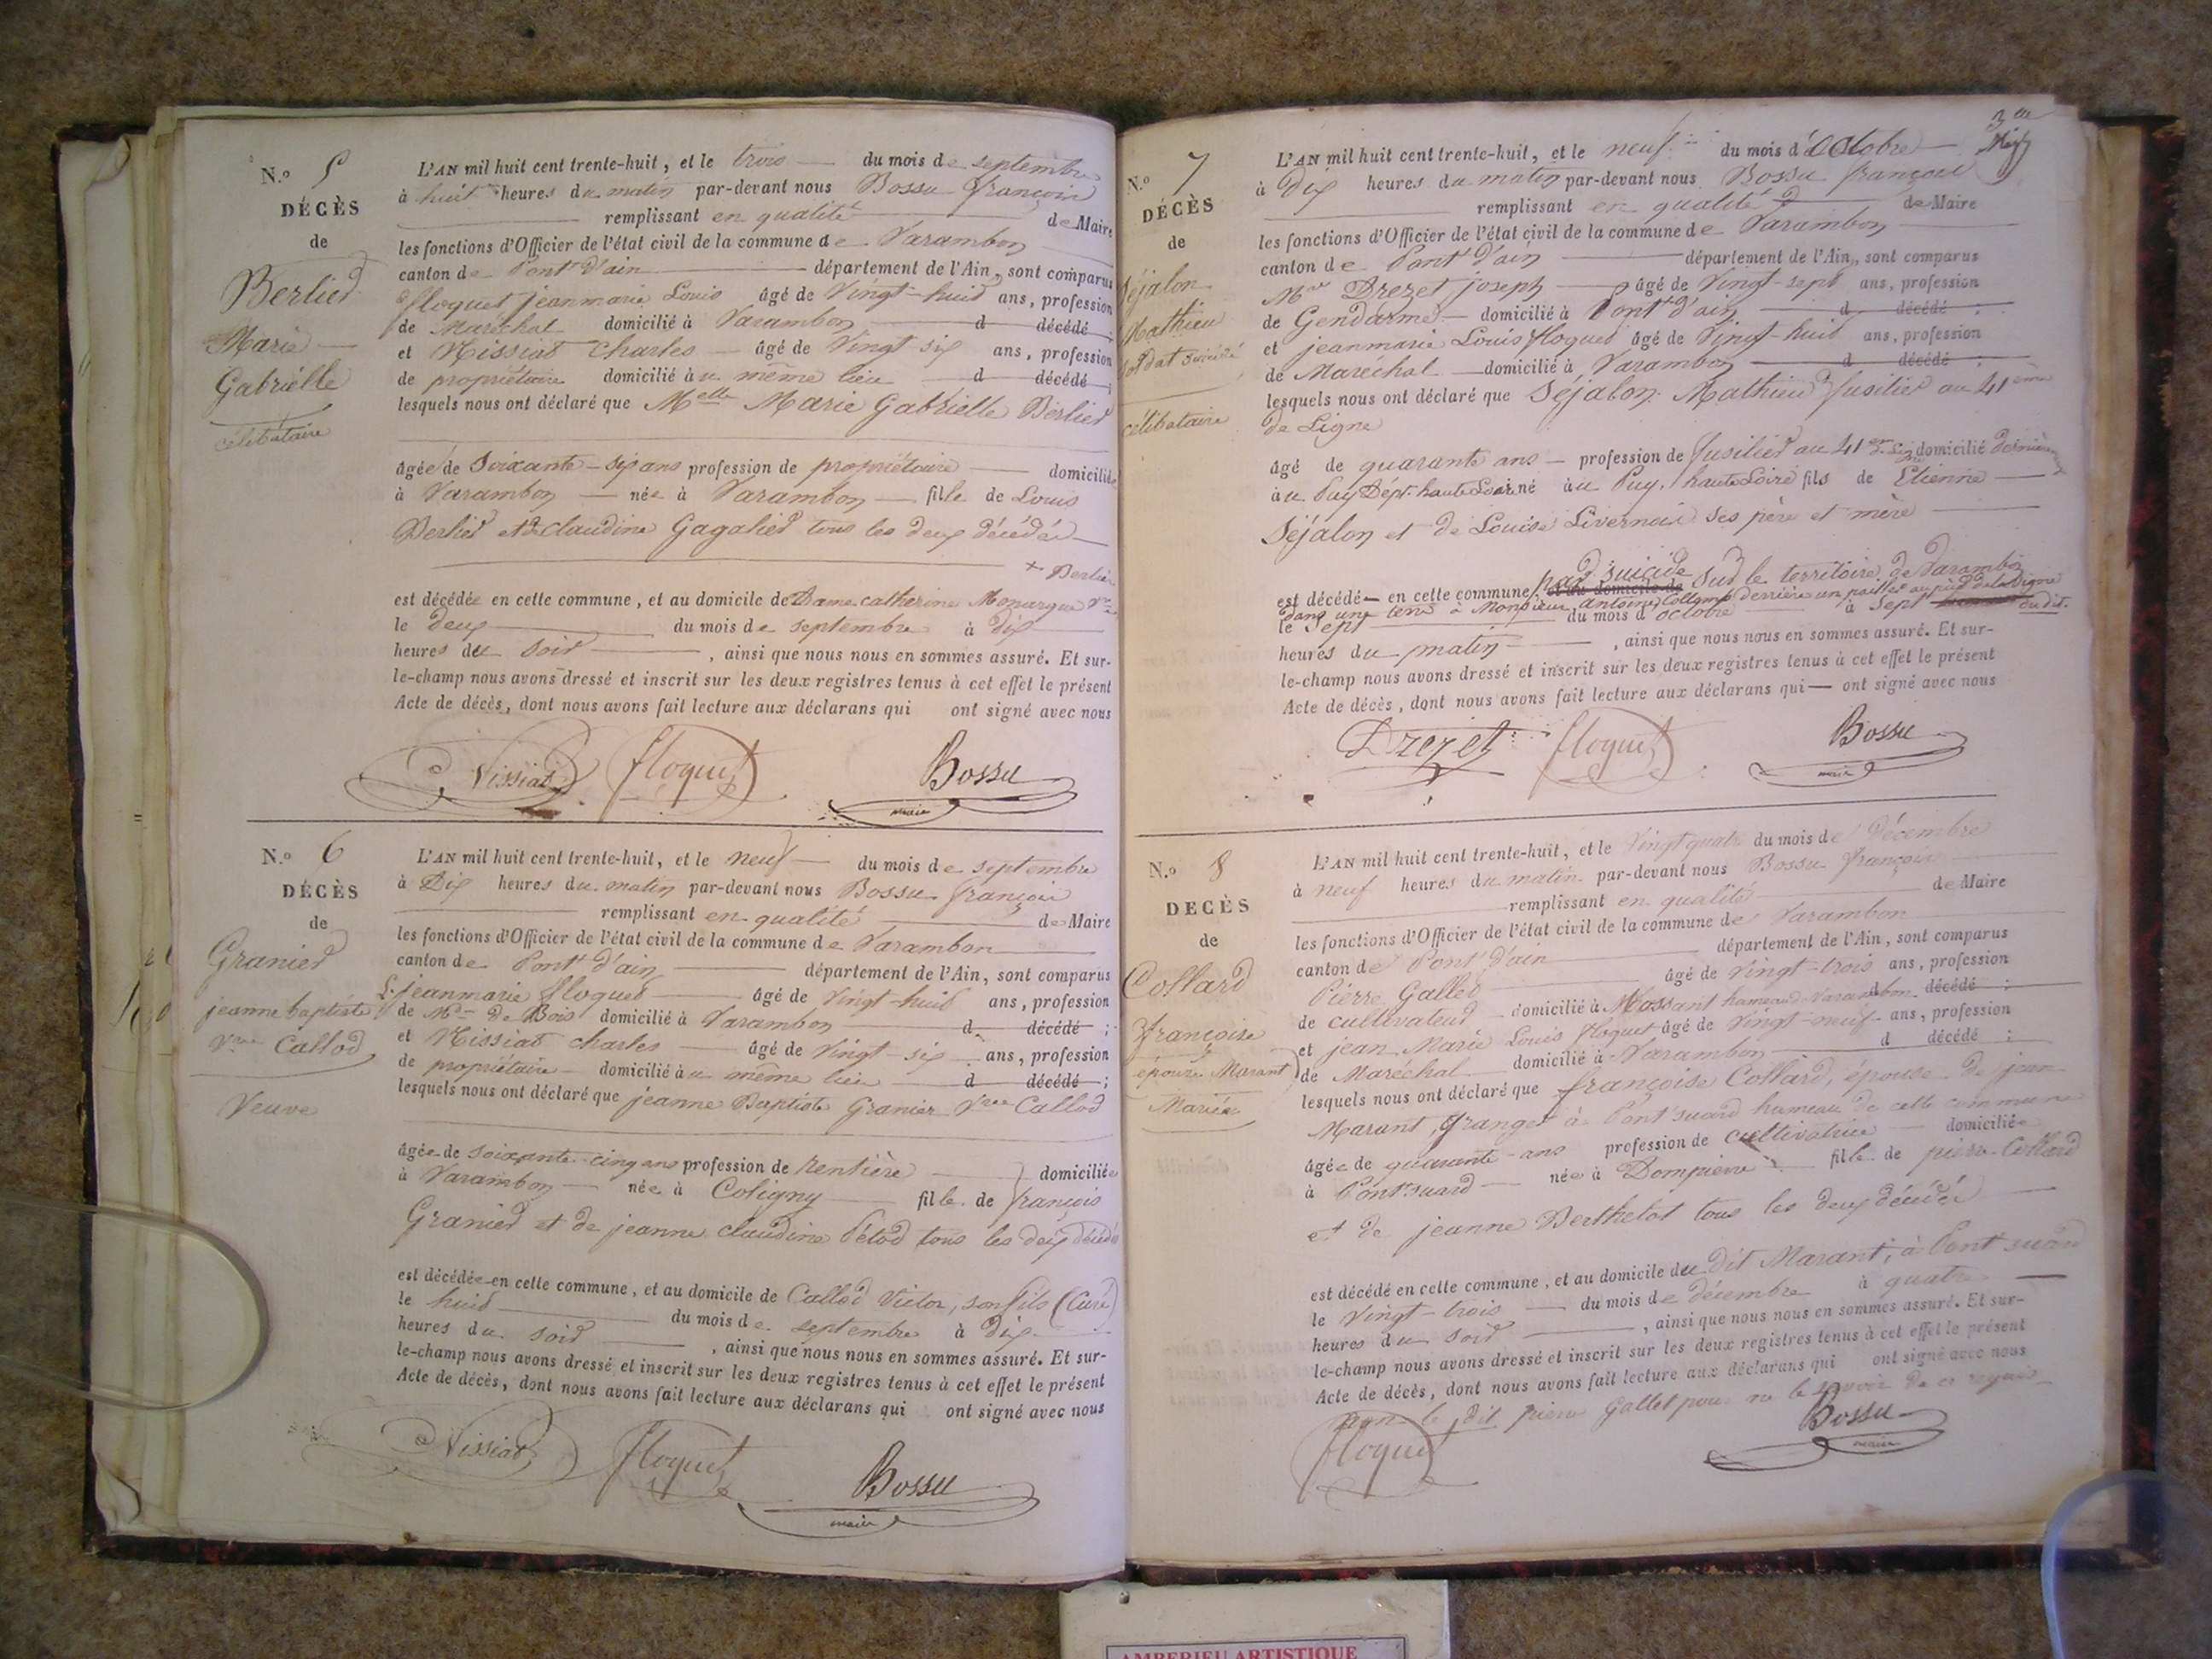 N.º 5
DÉCÈS
de
Berlier
Marie
Gabrielle
célibataire
L'AN mil huit cent trente-huit, et le trois du mois de septembre
à huit heures du matin par-devant nous Bossu françois
remplissant en qualité de Maire
les fonctions d'Officier de l'état civil de la commune de Varambon
canton de Pont d'ain département de l'Ain, sont comparus
floquet jeanmarie Louis âgé de Vingt-huit ans, profession
de Maréchal domicilié à Varambon d décédé ;
et Nissiat Charles âgé de Vingt six ans, profession
de propriétaire domicilié au même lieu d décédé ;
lesquels nous ont déclaré que Melle Marie Gabrielle Berlier
âgée de Soixante-six ans profession de propriétaire domiciliée
à Varambon née à Varambon fille de Louis
Berlier et de Claudine Gagalier tous les deux décédés
+ Berlier
est décédée en cette commune, et au domicile de Dame Catherine Monarque Vve
le deux du mois de septembre à dix
heures du soir , ainsi que nous nous en sommes assuré. Et sur-
le-champ nous avons dressé et inscrit sur les deux registres tenus à cet effet le présent
Acte de décès, dont nous avons fait lecture aux déclarans qui ont signé avec nous
Nissiat floquet Bossu
maire
N.º 6
DÉCÈS
de
Granier
jeanne baptiste
Vve Callod
Veuve
L'AN mil huit cent trente-huit, et le neuf du mois de septembre
à Dix heures du matin par-devant nous Bossu françois
remplissant en qualité de Maire
les fonctions d'Officier de l'état civil de la commune de Varambon
canton de Pont d'ain département de l'Ain, sont comparus
L. jeanmarie floquet âgé de Vingt-huit ans, profession
de Md de Bois domicilié à Varambon d décédé ;
et Nissiat charles âgé de Vingt-six ans, profession
de propriétaire domicilié au même lieu d décédé ;
lesquels nous ont déclaré que jeanne Baptiste Granier Vve Callod
âgée de soixante-cinq ans profession de rentière domiciliée
à Varambon née à Coligny fille de françois
Granier et de jeanne claudine Pélod tous les deux décédés
est décédée en cette commune, et au domicile de Callod Victor, son fils (Curé)
le huit du mois de septembre à dix
heures du soir , ainsi que nous nous en sommes assuré. Et sur-
le-champ nous avons dressé et inscrit sur les deux registres tenus à cet effet le présent
Acte de décès, dont nous avons fait lecture aux déclarans qui ont signé avec nous
Nissiat floquet Bossu
maire
3me
N.º 7
DÉCÈS
de
Séjalon
Mathieu
soldat suicidé
célibataire
L'AN mil huit cent trente-huit, et le neuf du mois d'Octobre
à Dix heures du matin par-devant nous Bossu françois
remplissant en qualité de Maire
les fonctions d'Officier de l'état civil de la commune de Varambon
canton de Pont d'ain département de l'Ain, sont comparus
Mr Drezet joseph âgé de Vingt-sept ans, profession
de Gendarme domicilié à Pont d'ain d décédé ;
et jeanmarie Louis floquet âgé de Vingt-huit ans, profession
de Maréchal domicilié à Varambon d décédé ;
lesquels nous ont déclaré que Séjalon Mathieu fusilier au 41ème
de Ligne
âgé de quarante ans profession de fusilier au 41 de Ligne domicilié dernièrement
au Puy Dépt. haute Loire né au Puy, haute Loire fils de Etienne
Séjalon et de Louise Livernois ses père et mère
est décédé en cette commune, et au domicile de par suicide sur le territoire de Varambon
dans une terre à Monsieur Antoine Collomp derrière un paillier au pied de la vigne
le Sept du mois d'octobre à Sept du dit.
heures du matin , ainsi que nous nous en sommes assuré. Et sur-
le-champ nous avons dressé et inscrit sur les deux registres tenus à cet effet le présent
Acte de décès, dont nous avons fait lecture aux déclarans qui ont signé avec nous
Drezet floquet Bossu
maire
N.º 8
DÉCÈS
de
Collard
françoise
épouse Marant
Mariée
L'AN mil huit cent trente-huit, et le Vingt quatre du mois de Décembre
à neuf heures du matin par-devant nous Bossu françois
remplissant en qualité de Maire
les fonctions d'Officier de l'état civil de la commune de Varambon
canton de Pont d'ain département de l'Ain, sont comparus
Pierre Gallet âgé de Vingt-trois ans, profession
de cultivateur domicilié à Mossant hameau Varambon d décédé ;
et jean Marie Louis floquet âgé de Vingt-neuf ans, profession
de Maréchal domicilié à Varambon d décédé ;
lesquels nous ont déclaré que françoise Collard, épouse de jean
Marant, Granger à Pont suard hameau de cette commune
âgée de quarante ans profession de cultivatrice domiciliée
à Pont suard née à Dompierre fille de pierre Collard
et de jeanne Berthelot tous les deux décédés
est décédé en cette commune, et au domicile du dit Marant, à Pont suard
le Vingt-trois du mois de décembre à quatre
heures du soir , ainsi que nous nous en sommes assuré. Et sur-
le-champ nous avons dressé et inscrit sur les deux registres tenus à cet effet le présent
Acte de décès, dont nous avons fait lecture aux déclarans qui ont signé avec nous
non le dit pierre Gallet pour ne le savoir de ce requis
floquet Bossu
maire
AMBERIEU ARTISTIQUE